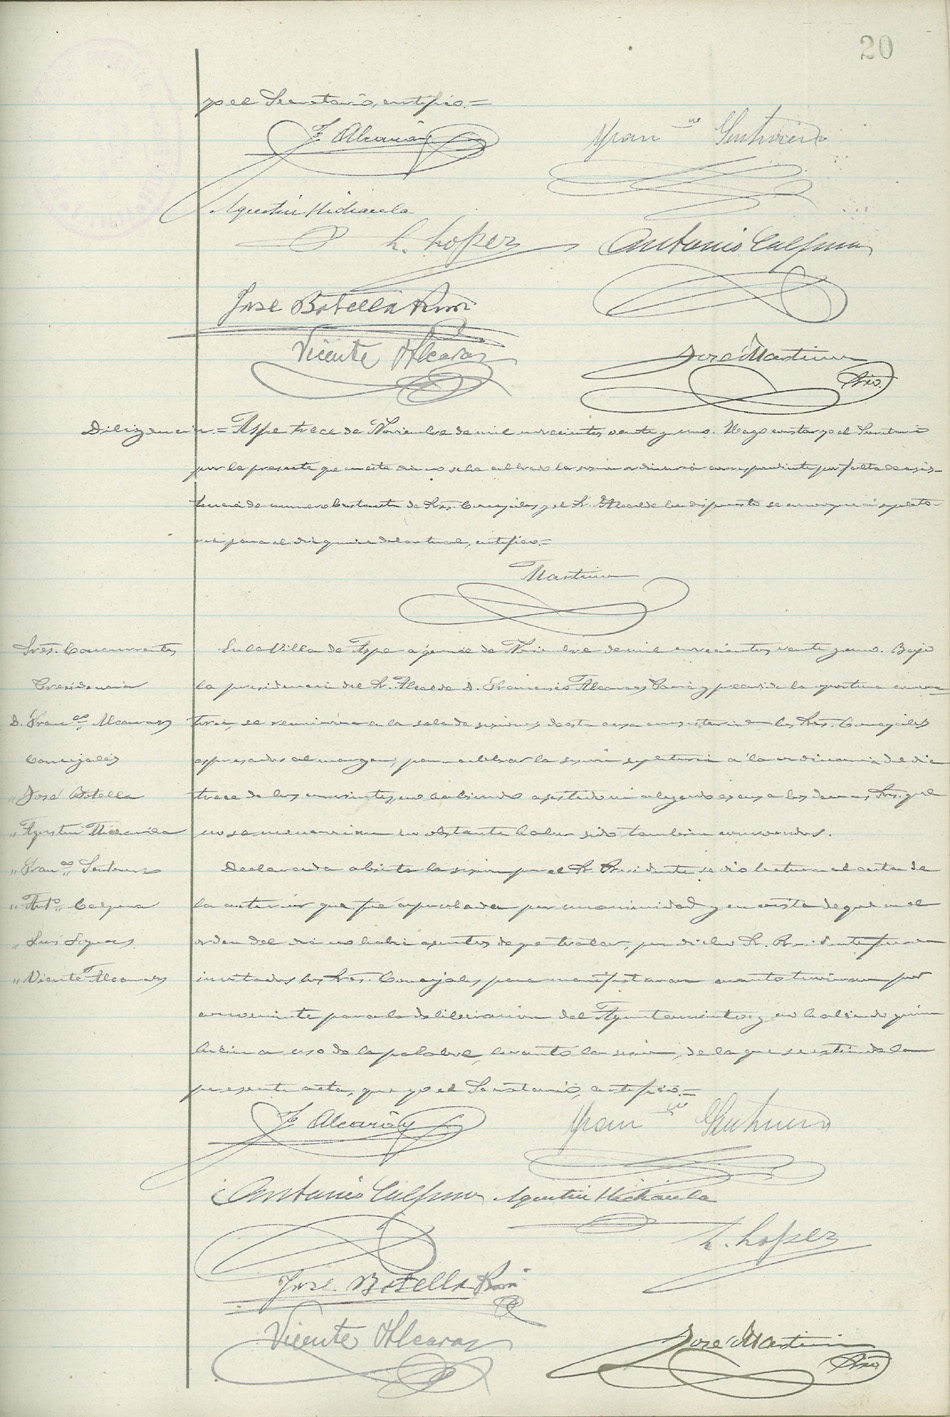 20
yo el Secretario, certifico.=
F. Alcaraz
Fran co
Agustin Mira
L. Lopez
Antonio Calpena
José Botella
Vicente Alcaraz
José Martinez
Srio.
Diligencia.= Aspe trece de Noviembre de mil novecientos veinte y uno. Hago constar yo el Secretario
por la presente que en este dia no se ha celebrado la sesion ordinaria correspondiente por falta de asis-
tencia de numero bastante de Sres. Concejales, y el Sr. Alcalde ha dispuesto se convoque á supleto-
ria para el dia quince del actual, certifico.=
Martinez
Sres. Concurrentes
Presidencia
D. Fran co Alcaraz
Concejales
" José Botella
" Agustin
" Fran co
" Ant o Calpena
" Luis Lopez
" Vicente Alcaraz
En la Villa de Aspe a quince de Noviembre de mil novecientos veinte y uno. Bajo
la presidencia del Sr. Alcalde D. Francisco Alcaraz y precedida la oportuna convoca-
toria, se reunieron en la sala de sesiones de esta casa consistorial los Sres. Concejales
expresados al margen, para celebrar la sesion supletoria á la ordinaria del dia
trece de los corrientes, no habiendo asistido ni alegado excusa los demas Sres. que
no se mencionan no obstante haber sido tambien convocados.
Declarada abierta la sesion por el Sr. Presidente se dió lectura al acta de
la anterior que fué aprobada por unanimidad y en vista de que en el
orden del dia no habia asuntos de que tratar, por dicho Sr. Presidente fueron
invitados los Sres. Concejales para que manifestaran cuanto tuvieran por
conveniente para la deliberacion del Ayuntamiento; y no habiendo quien
hiciera uso de la palabra, levantó la sesion, de la que se extiende la
presente acta, que yo el Secretario, certifico.=
F. Alcaraz
Fran co
Antonio Calpena
Agustin
L. Lopez
José Botella
Vicente Alcaraz
José Martinez
Srio.